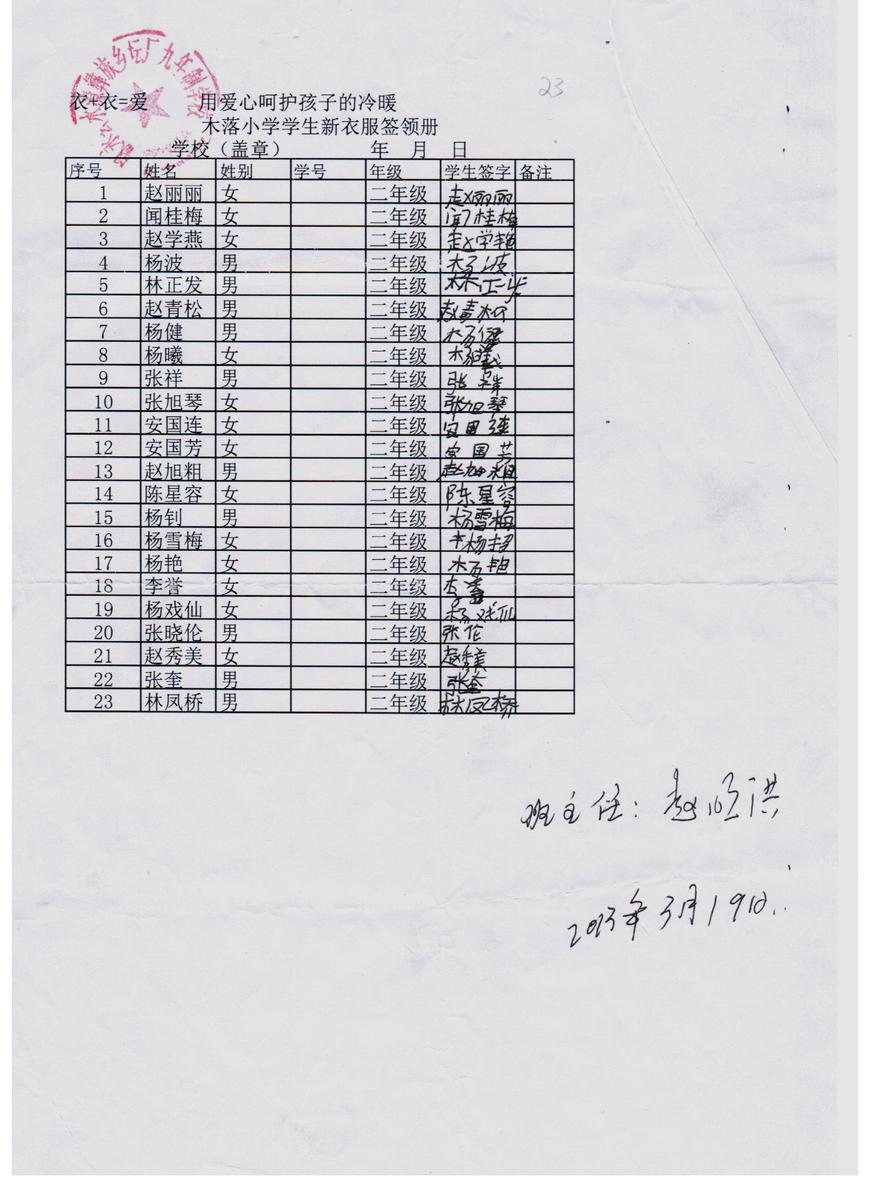 23
衣+衣=爱 用爱心呵护孩子的冷暖
木落小学学生新衣服签领册
学校（盖章） 年 月 日
序号 姓名 姓别 学号 年级 学生签字 备注
1 赵丽丽 女 二年级 赵丽丽
2 闻桂梅 女 二年级 闻桂梅
3 赵学燕 女 二年级 赵学艳
4 杨波 男 二年级 杨波
5 林正发 男 二年级 林正
6 赵青松 男 二年级 赵青松
7 杨健 男 二年级 杨健
8 杨曦 女 二年级 杨
9 张祥 男 二年级 张祥
10 张旭琴 女 二年级 张旭琴
11 安国连 女 二年级 安国连
12 安国芳 女 二年级 安国芳
13 赵旭粗 男 二年级 赵旭粗
14 陈星容 女 二年级 陈星容
15 杨钊 男 二年级 杨雪梅
16 杨雪梅 女 二年级 杨
17 杨艳 女 二年级 杨艳
18 李誉 女 二年级 李
19 杨戏仙 女 二年级 杨戏仙
20 张晓伦 男 二年级 张伦
21 赵秀美 女 二年级 赵秀美
22 张奎 男 二年级 张奎
23 林凤桥 男 二年级 林凤桥
班主任：赵顺洪
2013年3月19日